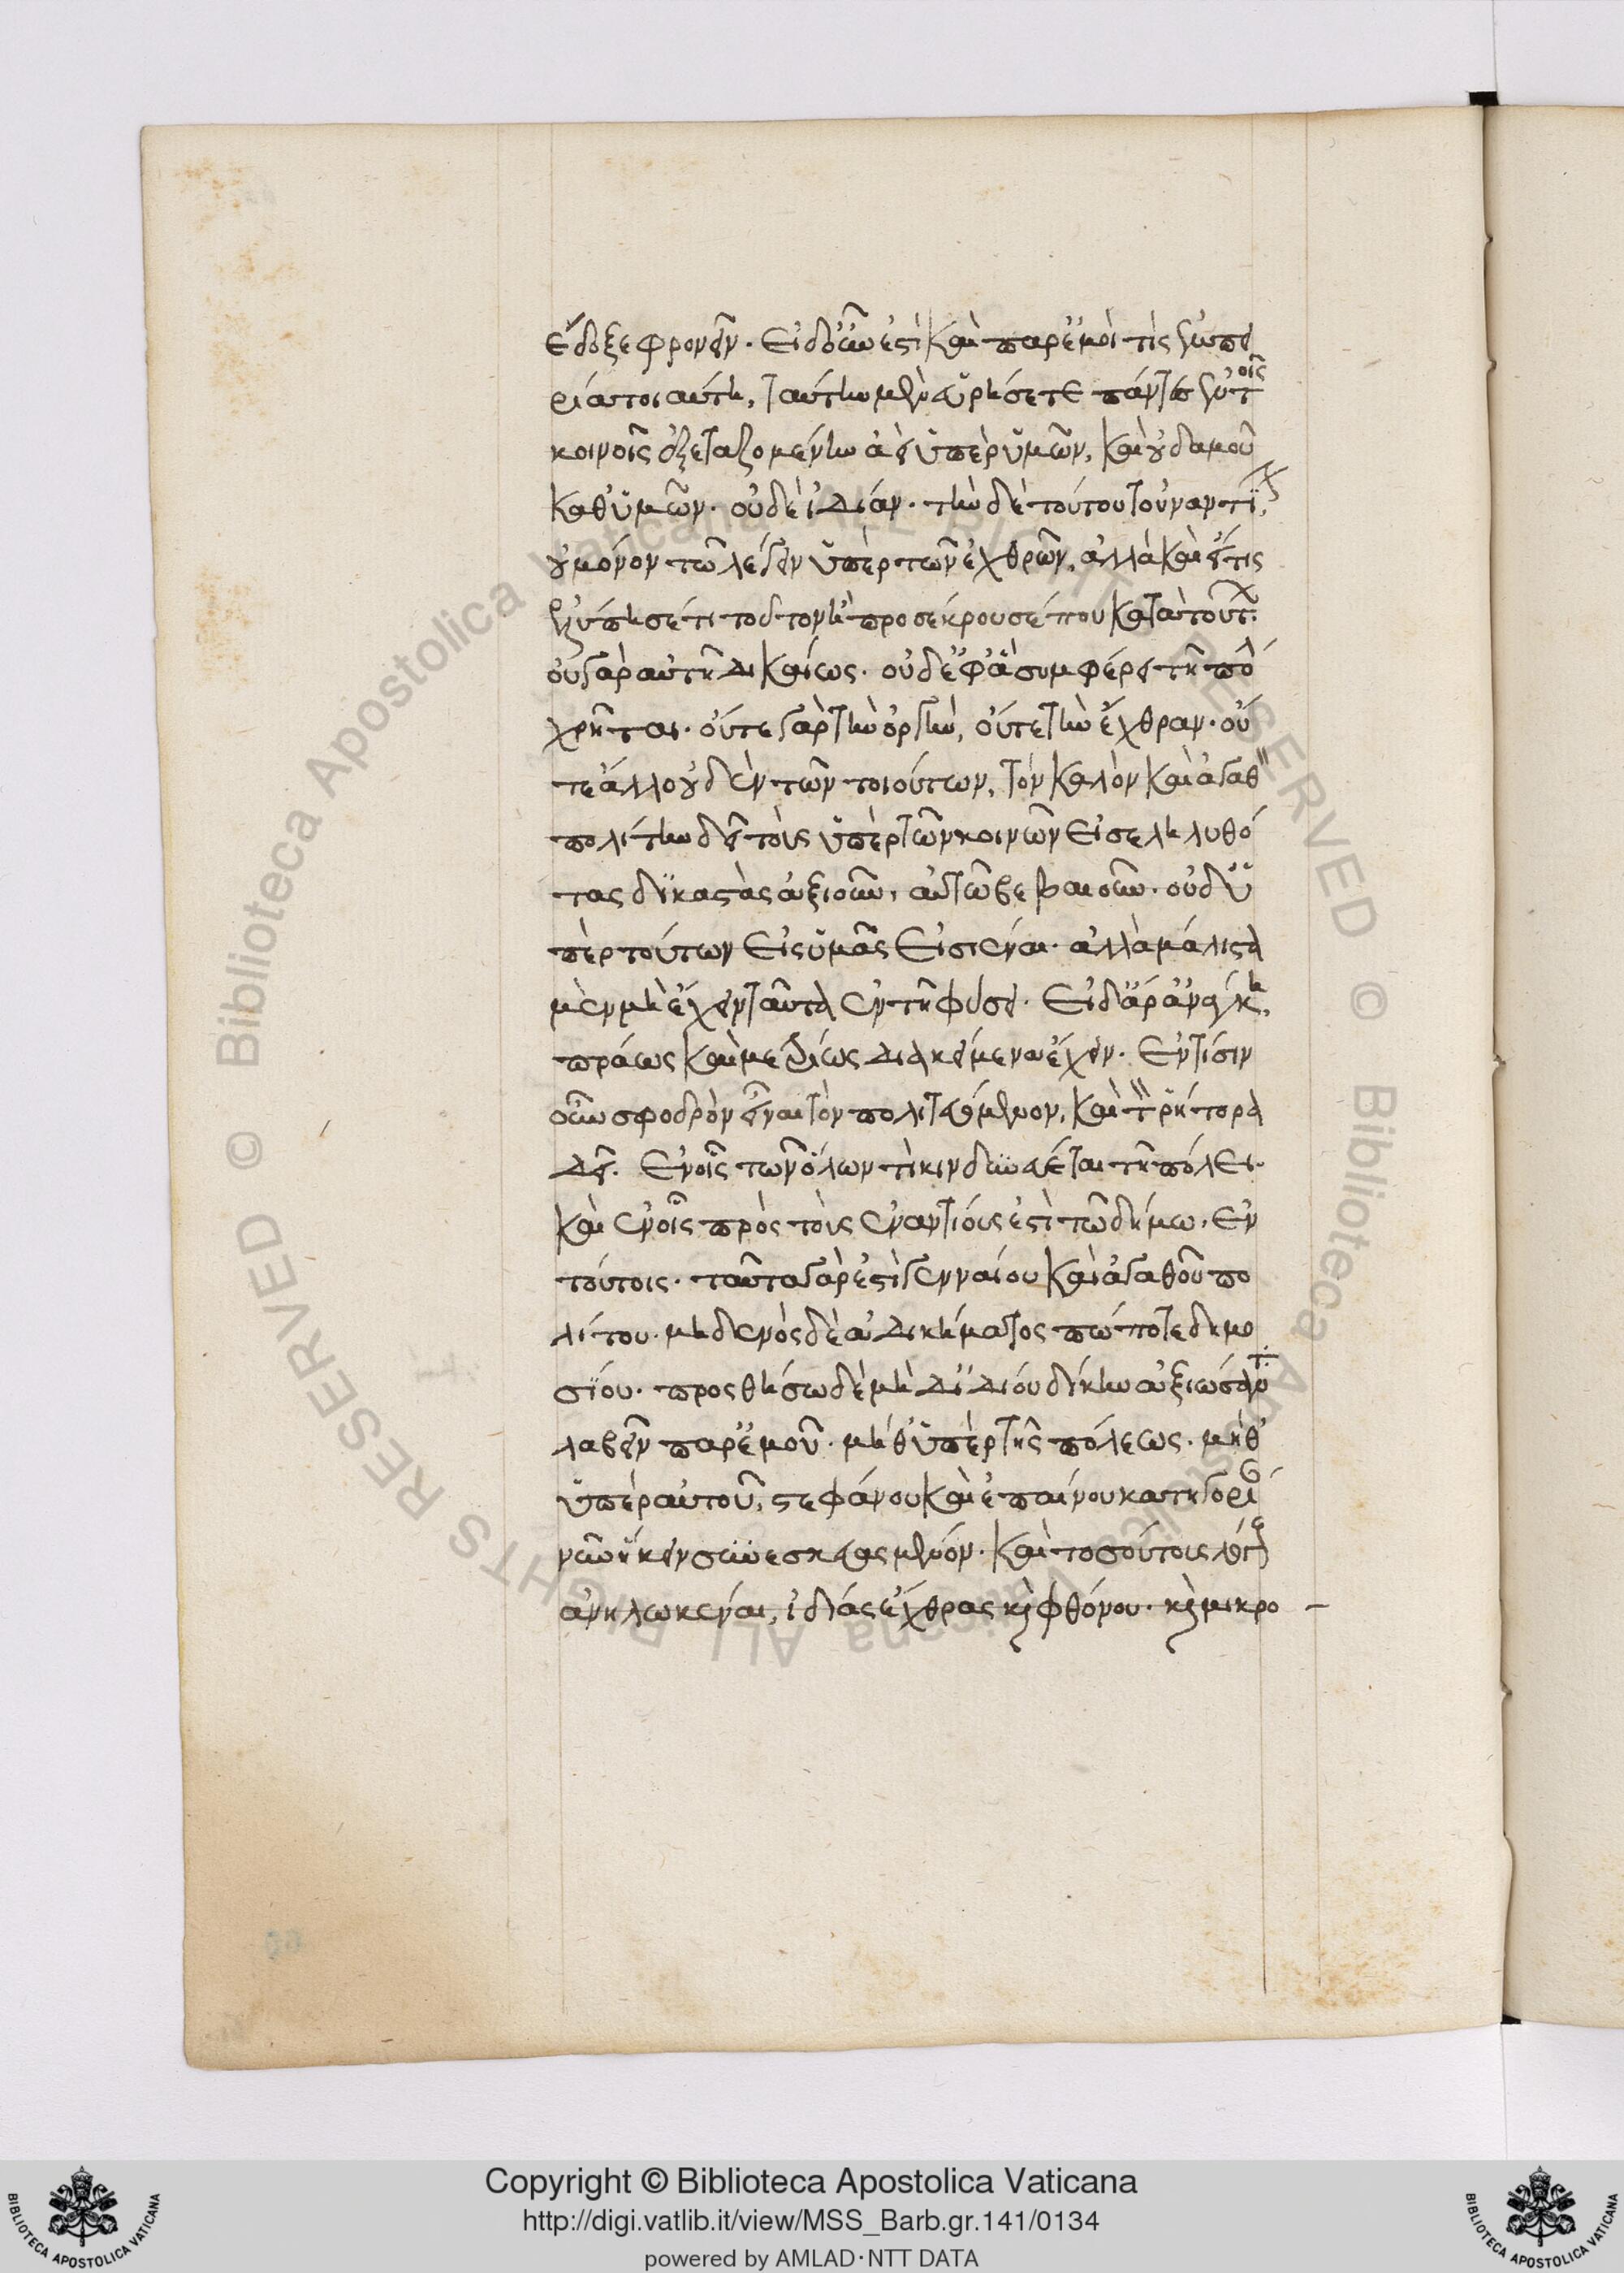 ἔδοξε φρονεῖν. εἰ δ' οὖν ἐστὶ καὶ παρ' ἐμοί τις ἐμπει
ρία τοιαύτη, ταύτην μὲν εὑρήσετε πάντες ἐν τοῖς
κοινοῖς ἐξεταζομένην ἀεὶ ὑπὲρ ὑμῶν, καὶ οὐδαμοῦ
καθ' ὑμῶν. οὐδὲ ἰδίαν. τὴν δὲ τούτου τοὐναντίον,
οὐ μόνον τῷ λέγειν ὑπὲρ τῶν ἐχθρῶν, ἀλλὰ καὶ εἴ τις
ἐλύπησέ τι τοῦτον ἢ προσέκρουσέ που κατὰ τούτων.
οὐ γὰρ αὐτῇ δικαίως. οὐδ' ἐφ' ἃ συμφέρει τῇ πόλει
χρῆται. οὔτε γὰρ τὴν ὀργήν, οὔτε τὴν ἔχθραν. οὔ
τε ἄλλο οὐδὲν τῶν τοιούτων, τὸν καλὸν καὶ ἀγαθὸν
πολίτην δεῖ τοὺς ὑπὲρ τῶν κοινῶν εἰσεληλυθό
τας δικαστὰς ἀξιοῦν, αὑτῷ βεβαιοῦν. οὐδ' ὑ
πὲρ τούτων εἰς ὑμᾶς εἰσιέναι. ἀλλὰ μάλιστα
μὲν μὴ ἔχειν ταῦτα ἐν τῇ φύσει. εἰ δ' ἄρ' ἀνάγκη,
πράως καὶ μετρίως διακείμενα ἔχειν. ἐν τίσιν
οὖν σφοδρὸν εἶναι τὸν πολιτευόμενον, καὶ τὸν ῥήτορα
δεῖ. ἐν οἷς τῶν ὅλων τὶ κινδυνεύεται τῇ πόλει.
καὶ ἐν οἷς πρὸς τοὺς ἐναντίους ἐστὶ τῷ δήμῳ. ἐν
τούτοις. ταῦτα γάρ ἐστι γενναίου καὶ ἀγαθοῦ πο
λίτου. μηδενὸς δὲ ἀδικήματος πώποτε δημο
σίου. προσθήσω δὲ μὴ δ' ἰδίου δίκην ἀξιώσαντα
λαβεῖν παρ' ἐμοῦ. μήθ' ὑπὲρ τῆς πόλεως. μήθ'
ὑπὲρ αὑτοῦ, στεφάνου καὶ ἐπαίνου κατηγορί
αν ἥκειν συνεσκευασμένον. καὶ τοσούτους λόγους
ἀνηλωκέναι, ἰδίας ἔχθρας καὶ φθόνου. καὶ μικρο –
Copyright © Biblioteca Apostolica Vaticana
http://digi.vatlib.it/view/MSS_Barb.gr.141/0134
powered by AMLAD·NTT DATA